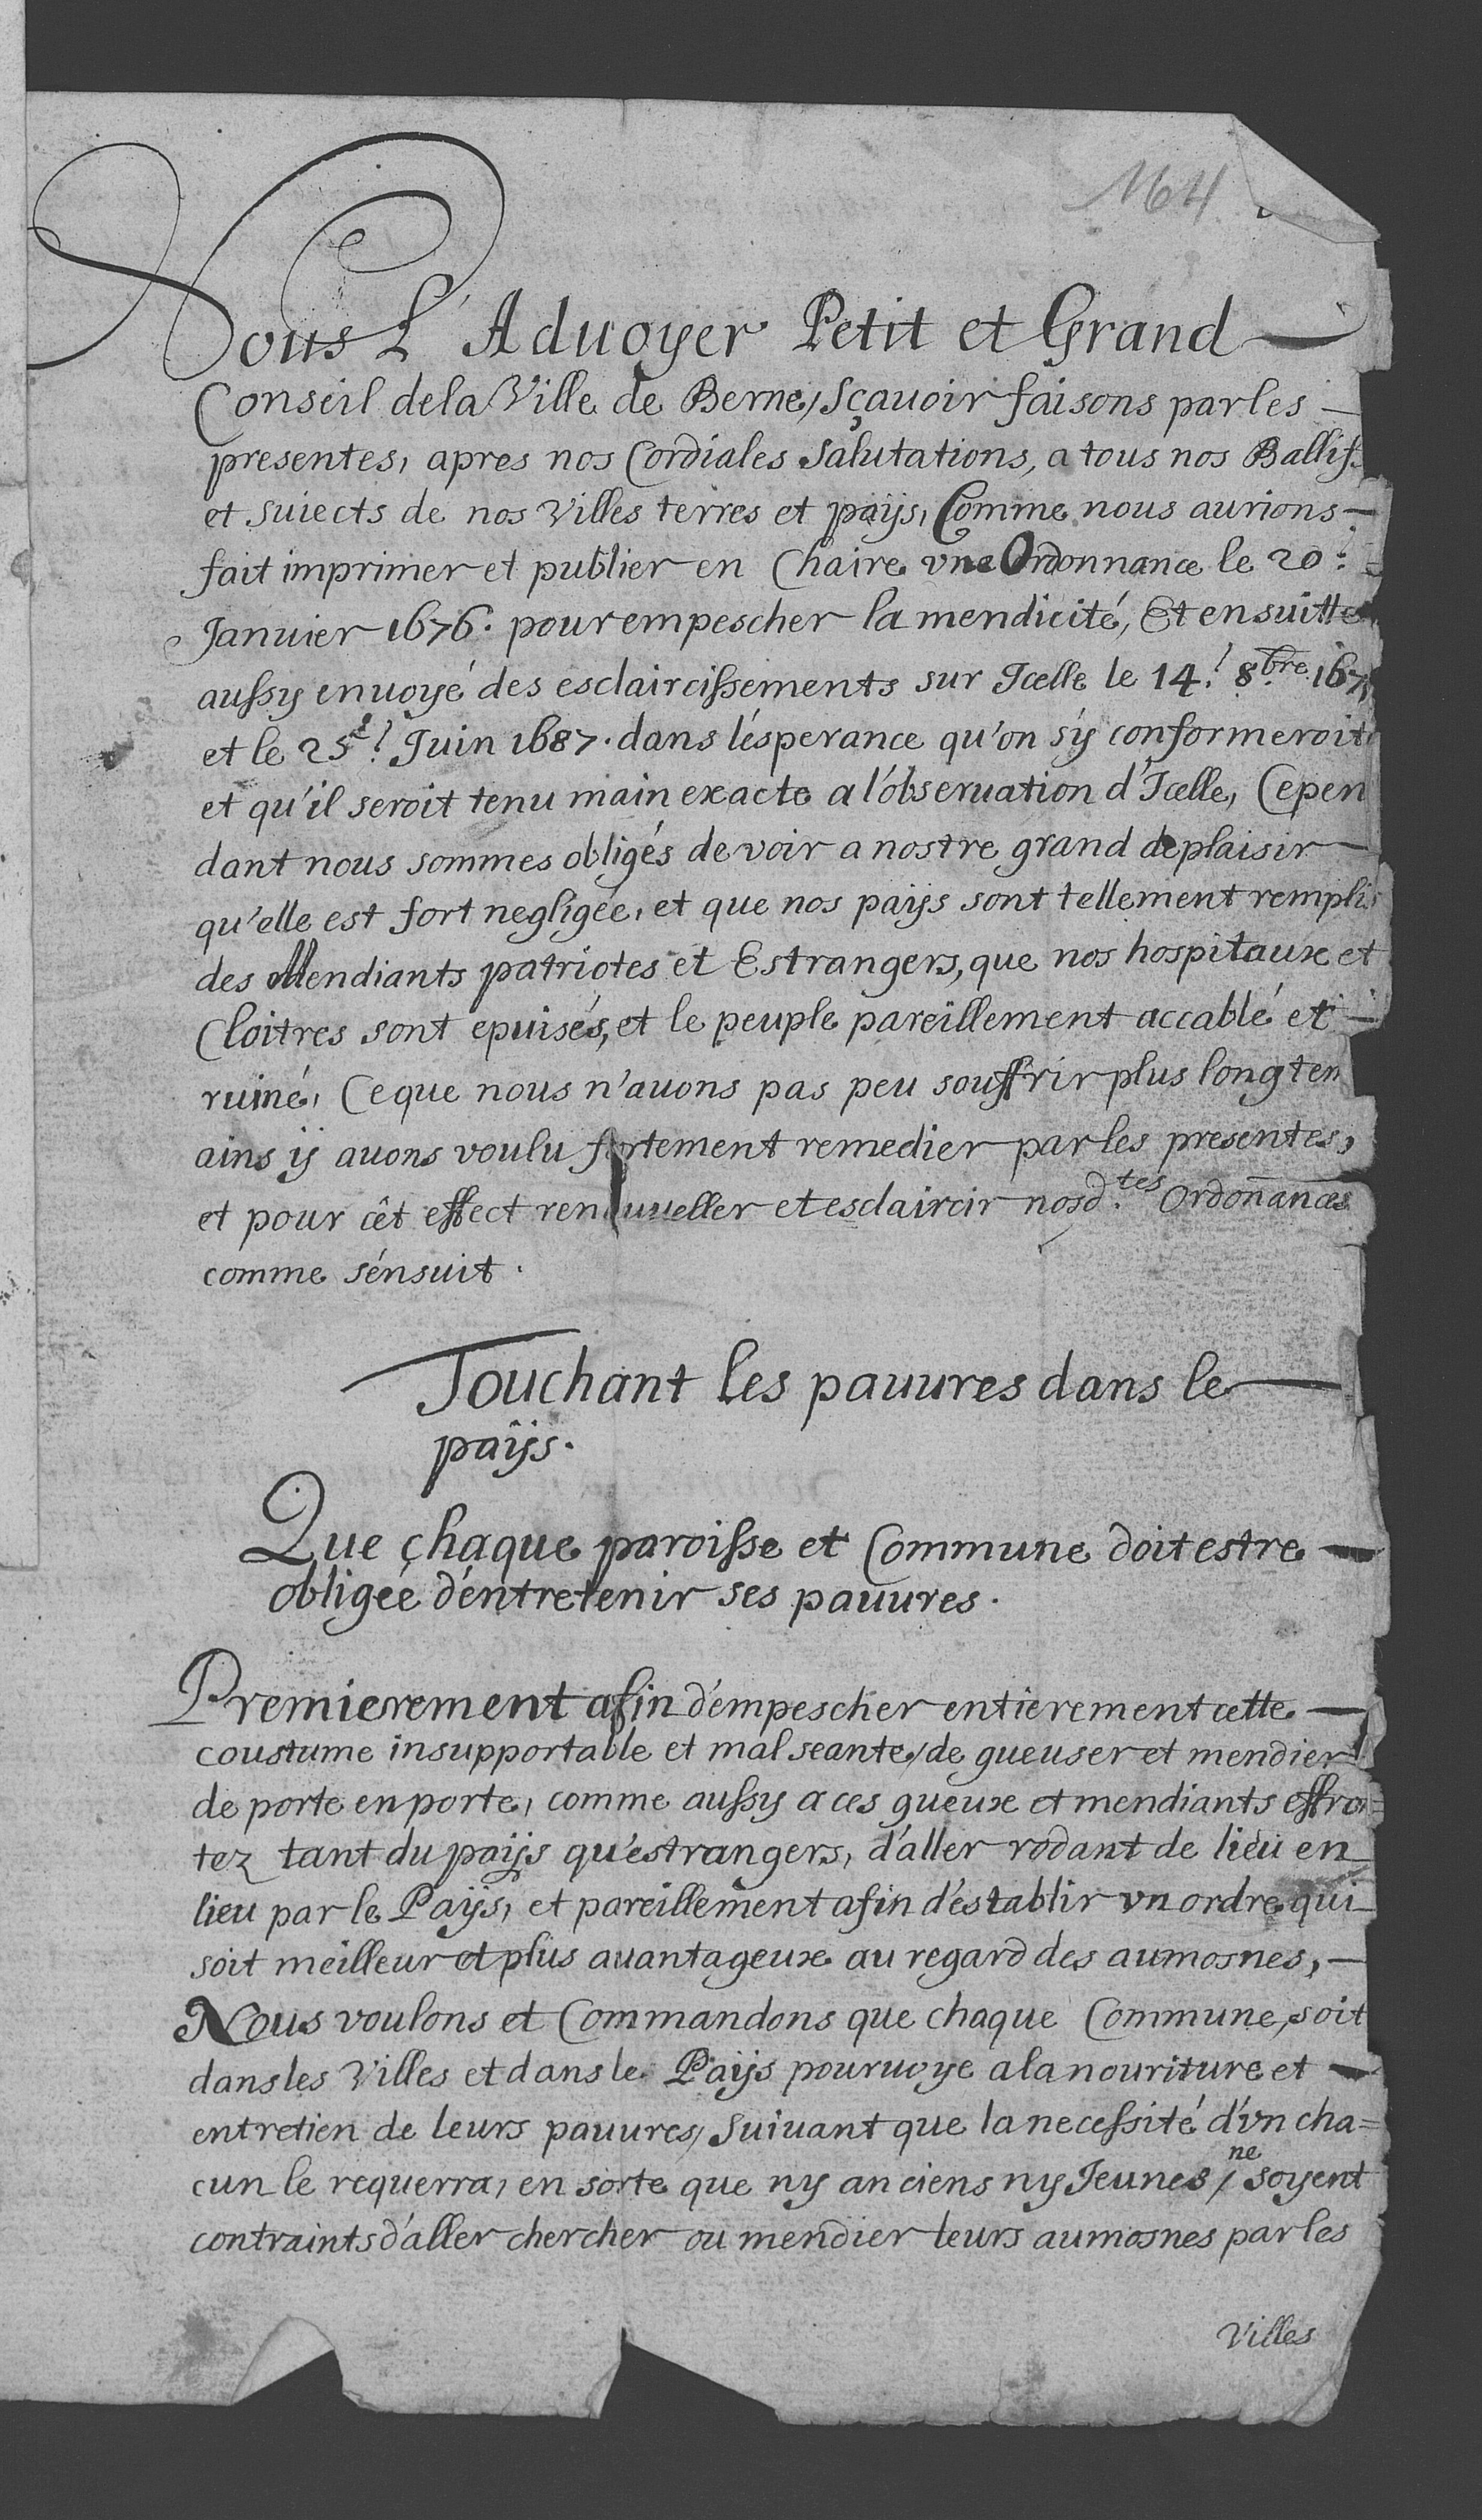 164
Nous L'Aduoyer Petit et Grand
Conseil de la Ville de Berne, Sçauoir faisons par les
presentes, apres nos Cordiales Salutations, a tous nos Ballifs
et Suiects de nos Villes terres et païjs, Comme nous aurions
fait imprimer et publier en Chaire vne Ordonnance le 20.e
Januier 1676. pour empescher la mendicité, Et en suitte
aussy enuoyé des esclaircissements sur Jcelle le 14.e 8.bre
et le 25.e Juin 1687. dans l'ésperance qu'on s'ÿ conformeroit
et qu'il seroit tenu main exacte a l'obseruation d'Jcelle, Cepen
dant nous sommes obligés de voir a nostre grand deplaisir
qu'elle est fort negligée, et que nos païjs sont tellement remplis
des Mendiants patriotes et Estrangers, que nos hospitaux et
Cloitres sont epuisés, et le peuple pareillement accablé et
ruiné, Ce que nous n'auons pas peu souffrir plus long tem
ains ÿ auons voulu fortement remedier par les presentes,
et pour cêt effect renouueller et esclaircir nosd.tes Ordon̄ances
comme s'énsuit.
Touchant les pauures dans le
païjs.
Que chaque paroisse et Commune doit estre
obligée d'éntretenir ses pauures.
Premierement afin d'émpescher entierement cette
coustume insupportable et mal seante, de gueuser et mendier
de porte en porte, comme aussy a ces gueux et mendiants effron=
tez tant du païjs qu'éstrangers, d'aller rodant de lieu en
lieu par le Païjs, et pareillement afin d'éstablir vn ordre qui
soit meilleur et plus auantageux au regard des aumosnes,
Nous voulons et Commandons que chaque Commune, soit
dans les Villes et dans le Païjs pouruoye a la nouriture et
entretien de leurs pauures, Suiuant que la necessité d'vn cha=
cun le requerra, en sorte que ny anciens ny Jeunes, ne soyent
contraints d'aller chercher ou mendier leurs aumosnes par les
Villes